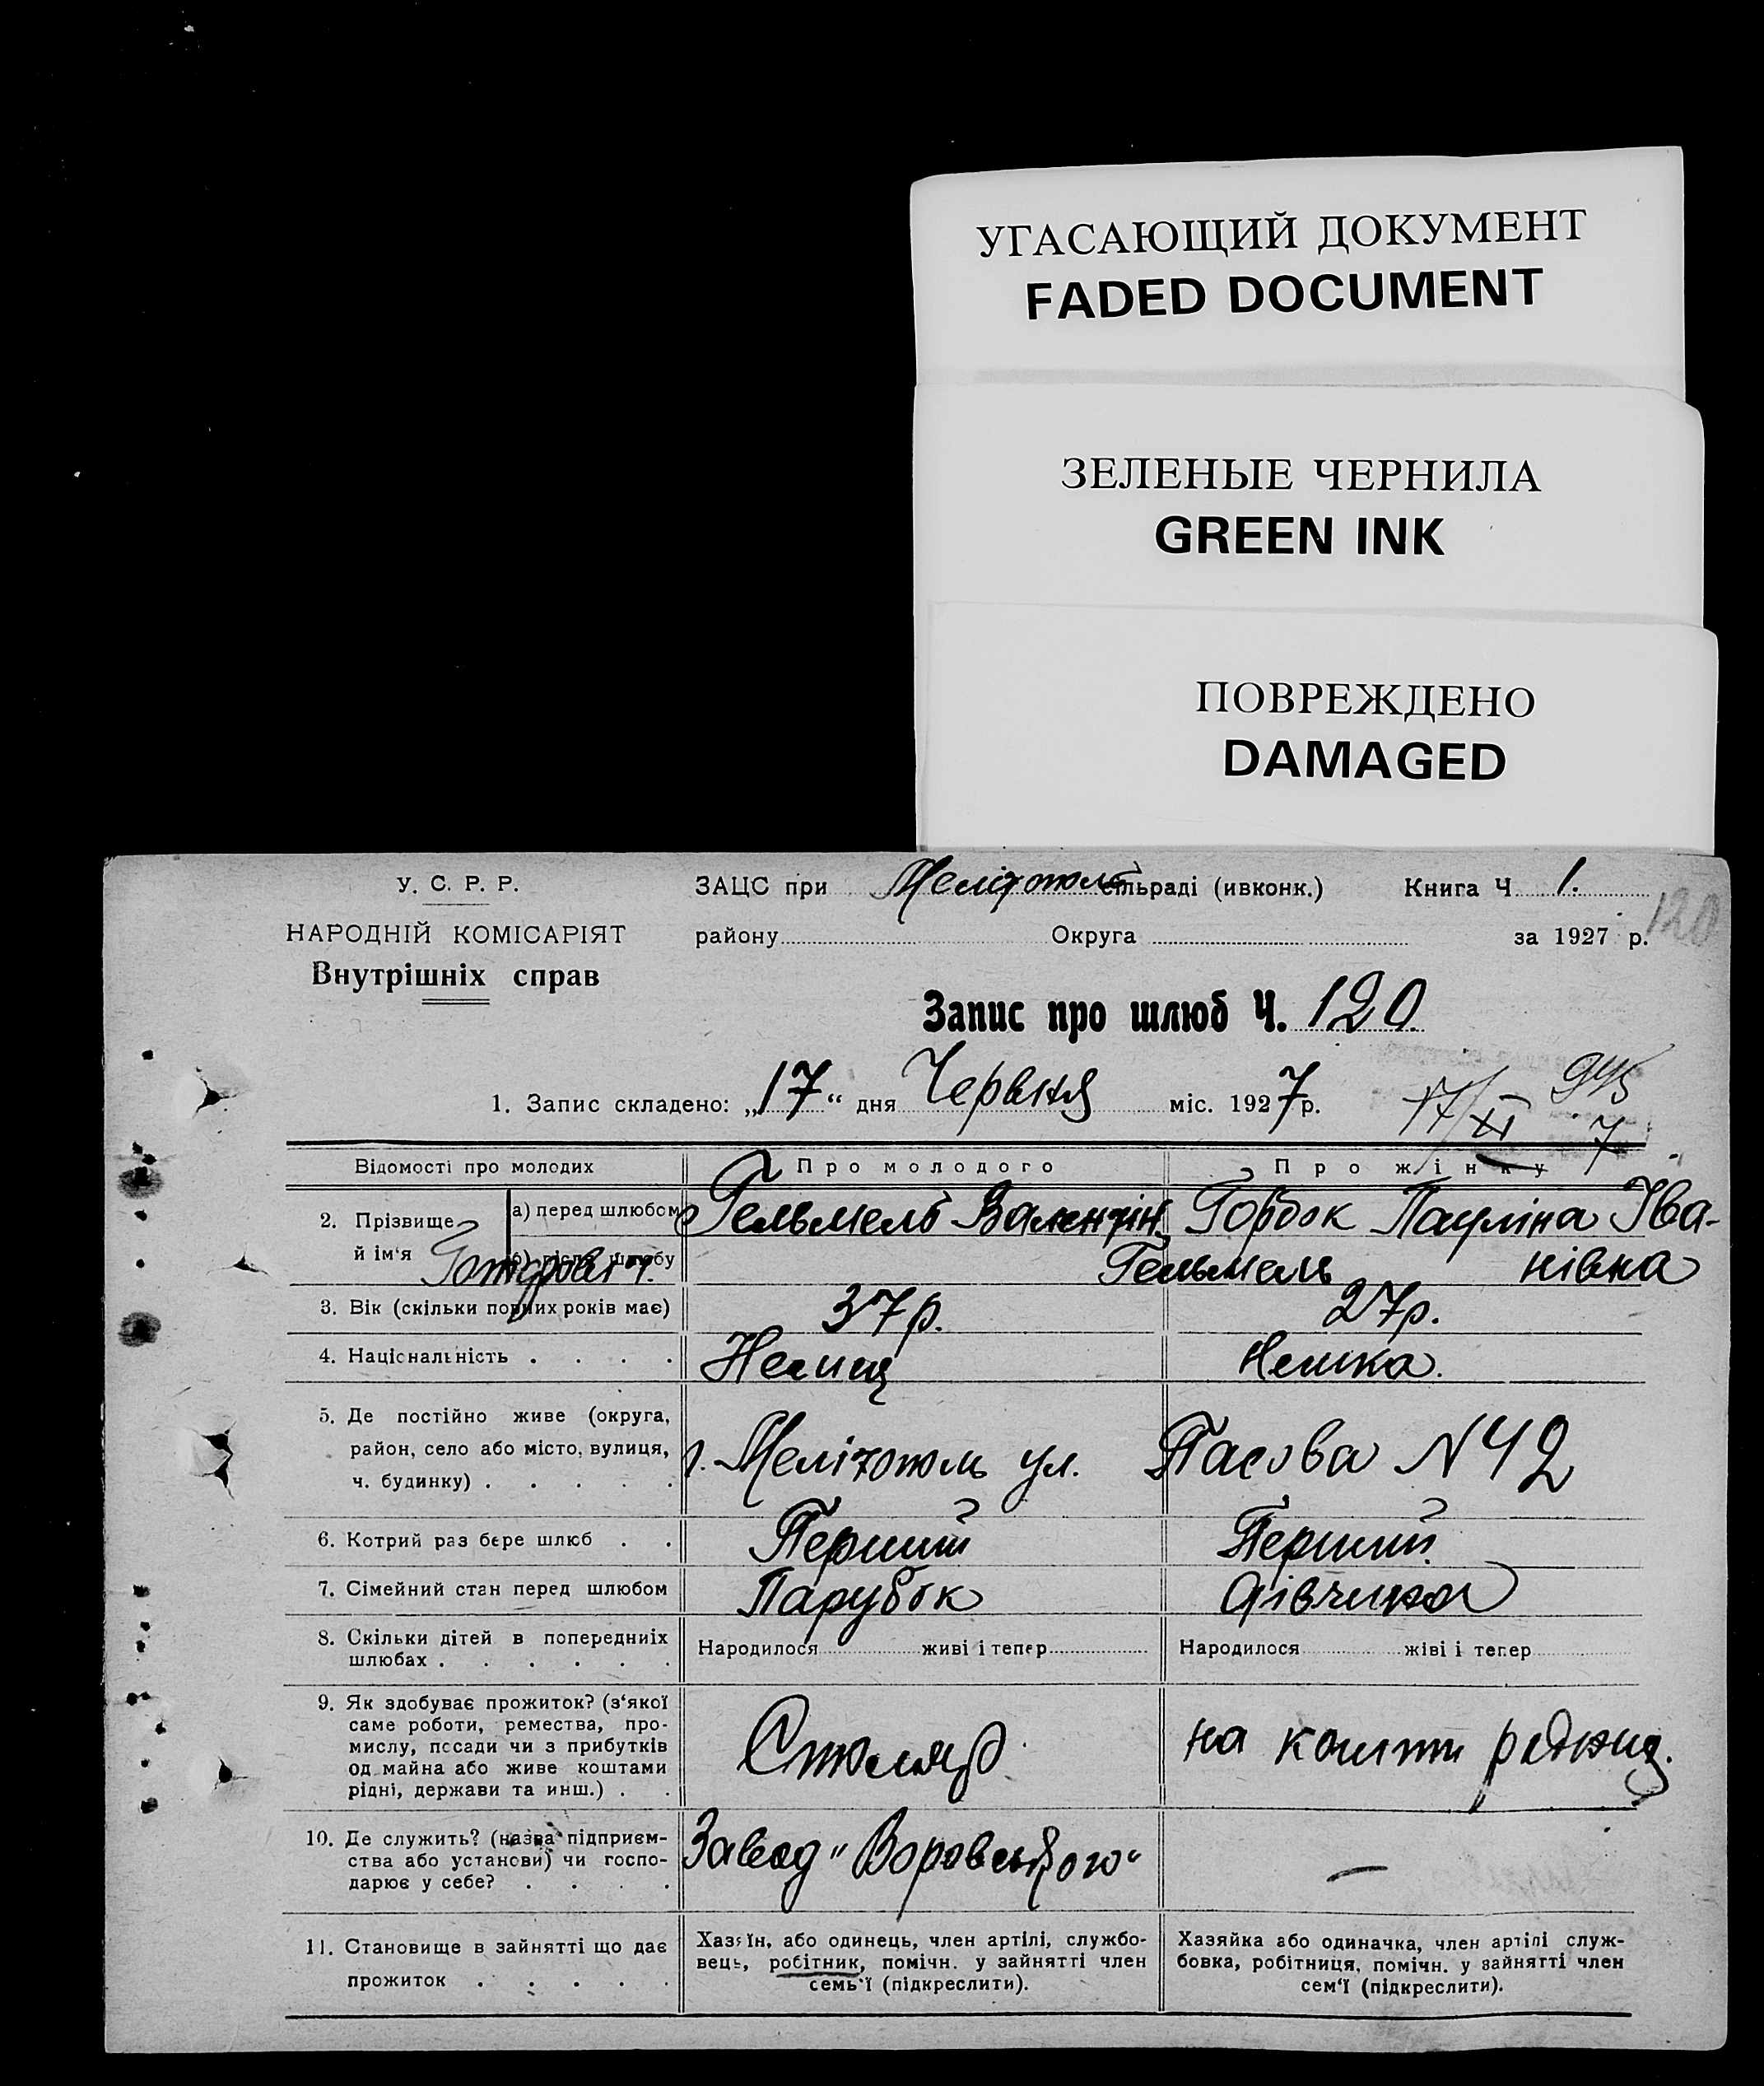 УГАСАЮЩИЙ ДОКУМЕНТ
FADED DOCUMENT
ЗЕЛЕНЫЕ ЧЕРНИЛА
GREEN INK
ПОВРЕЖДЕНО
DAMAGED
У. С. Р. Р.
НАРОДНІЙ КОМІСАРІЯТ
Внутрішніх справ
ЗАЦС при Мелітополь сільраді (ивконк.) Книга Ч 1.
району Округа за 1927 р.
120
Запис про шлюб Ч. 120
1. Запис складено: „17“ дня Червня міс. 1927 р.
17/XI 7
Відомості про молодих Про молодого Про жінку
2. Прізвище й ім'я
а) перед шлюбом Гельмель Валентін Горбок Пауліна Іва-
б) після шлюбу Гельмель нівна
3. Вік (скільки повних років має) 37 р. 27 р.
4. Національність . . . . Немиц Немка.
5. Де постійно живе (округа,
район, село або місто, вулиця,
ч. будинку) . . . . .
г. Мелітополь ул. N 42
6. Котрий раз бере шлюб . . Перший Перший.
7. Сімейний стан перед шлюбом Парубок Дівчина
8. Скільки дітей в попередниіх
шлюбах . . . . . .
Народилося живі і тепер Народилося жіві і тепер
9. Як здобуває прожиток? (з‘якої
саме роботи, ремества, про-
мислу, посади чи з прибутків
од майна або живе коштами
рідні, держави та инш.) . .
Столяр на кошти
10. Де служить? (назва підприєм-
ства або установи) чи госпо-
дарює у себе? . . . .
Завод „Воровського“ —
11. Становище в зайнятті що дає
прожиток . . . . .
Хазяїн, або одинець, член артілі, службо-
вець, робітник, помічн. у зайнятті член
семь'ї (підкреслити).
Хазяйка або одиначка, член артілі служ-
бовка, робітниця, помічн. у зайнятті член
сем‘ї (підкреслити).